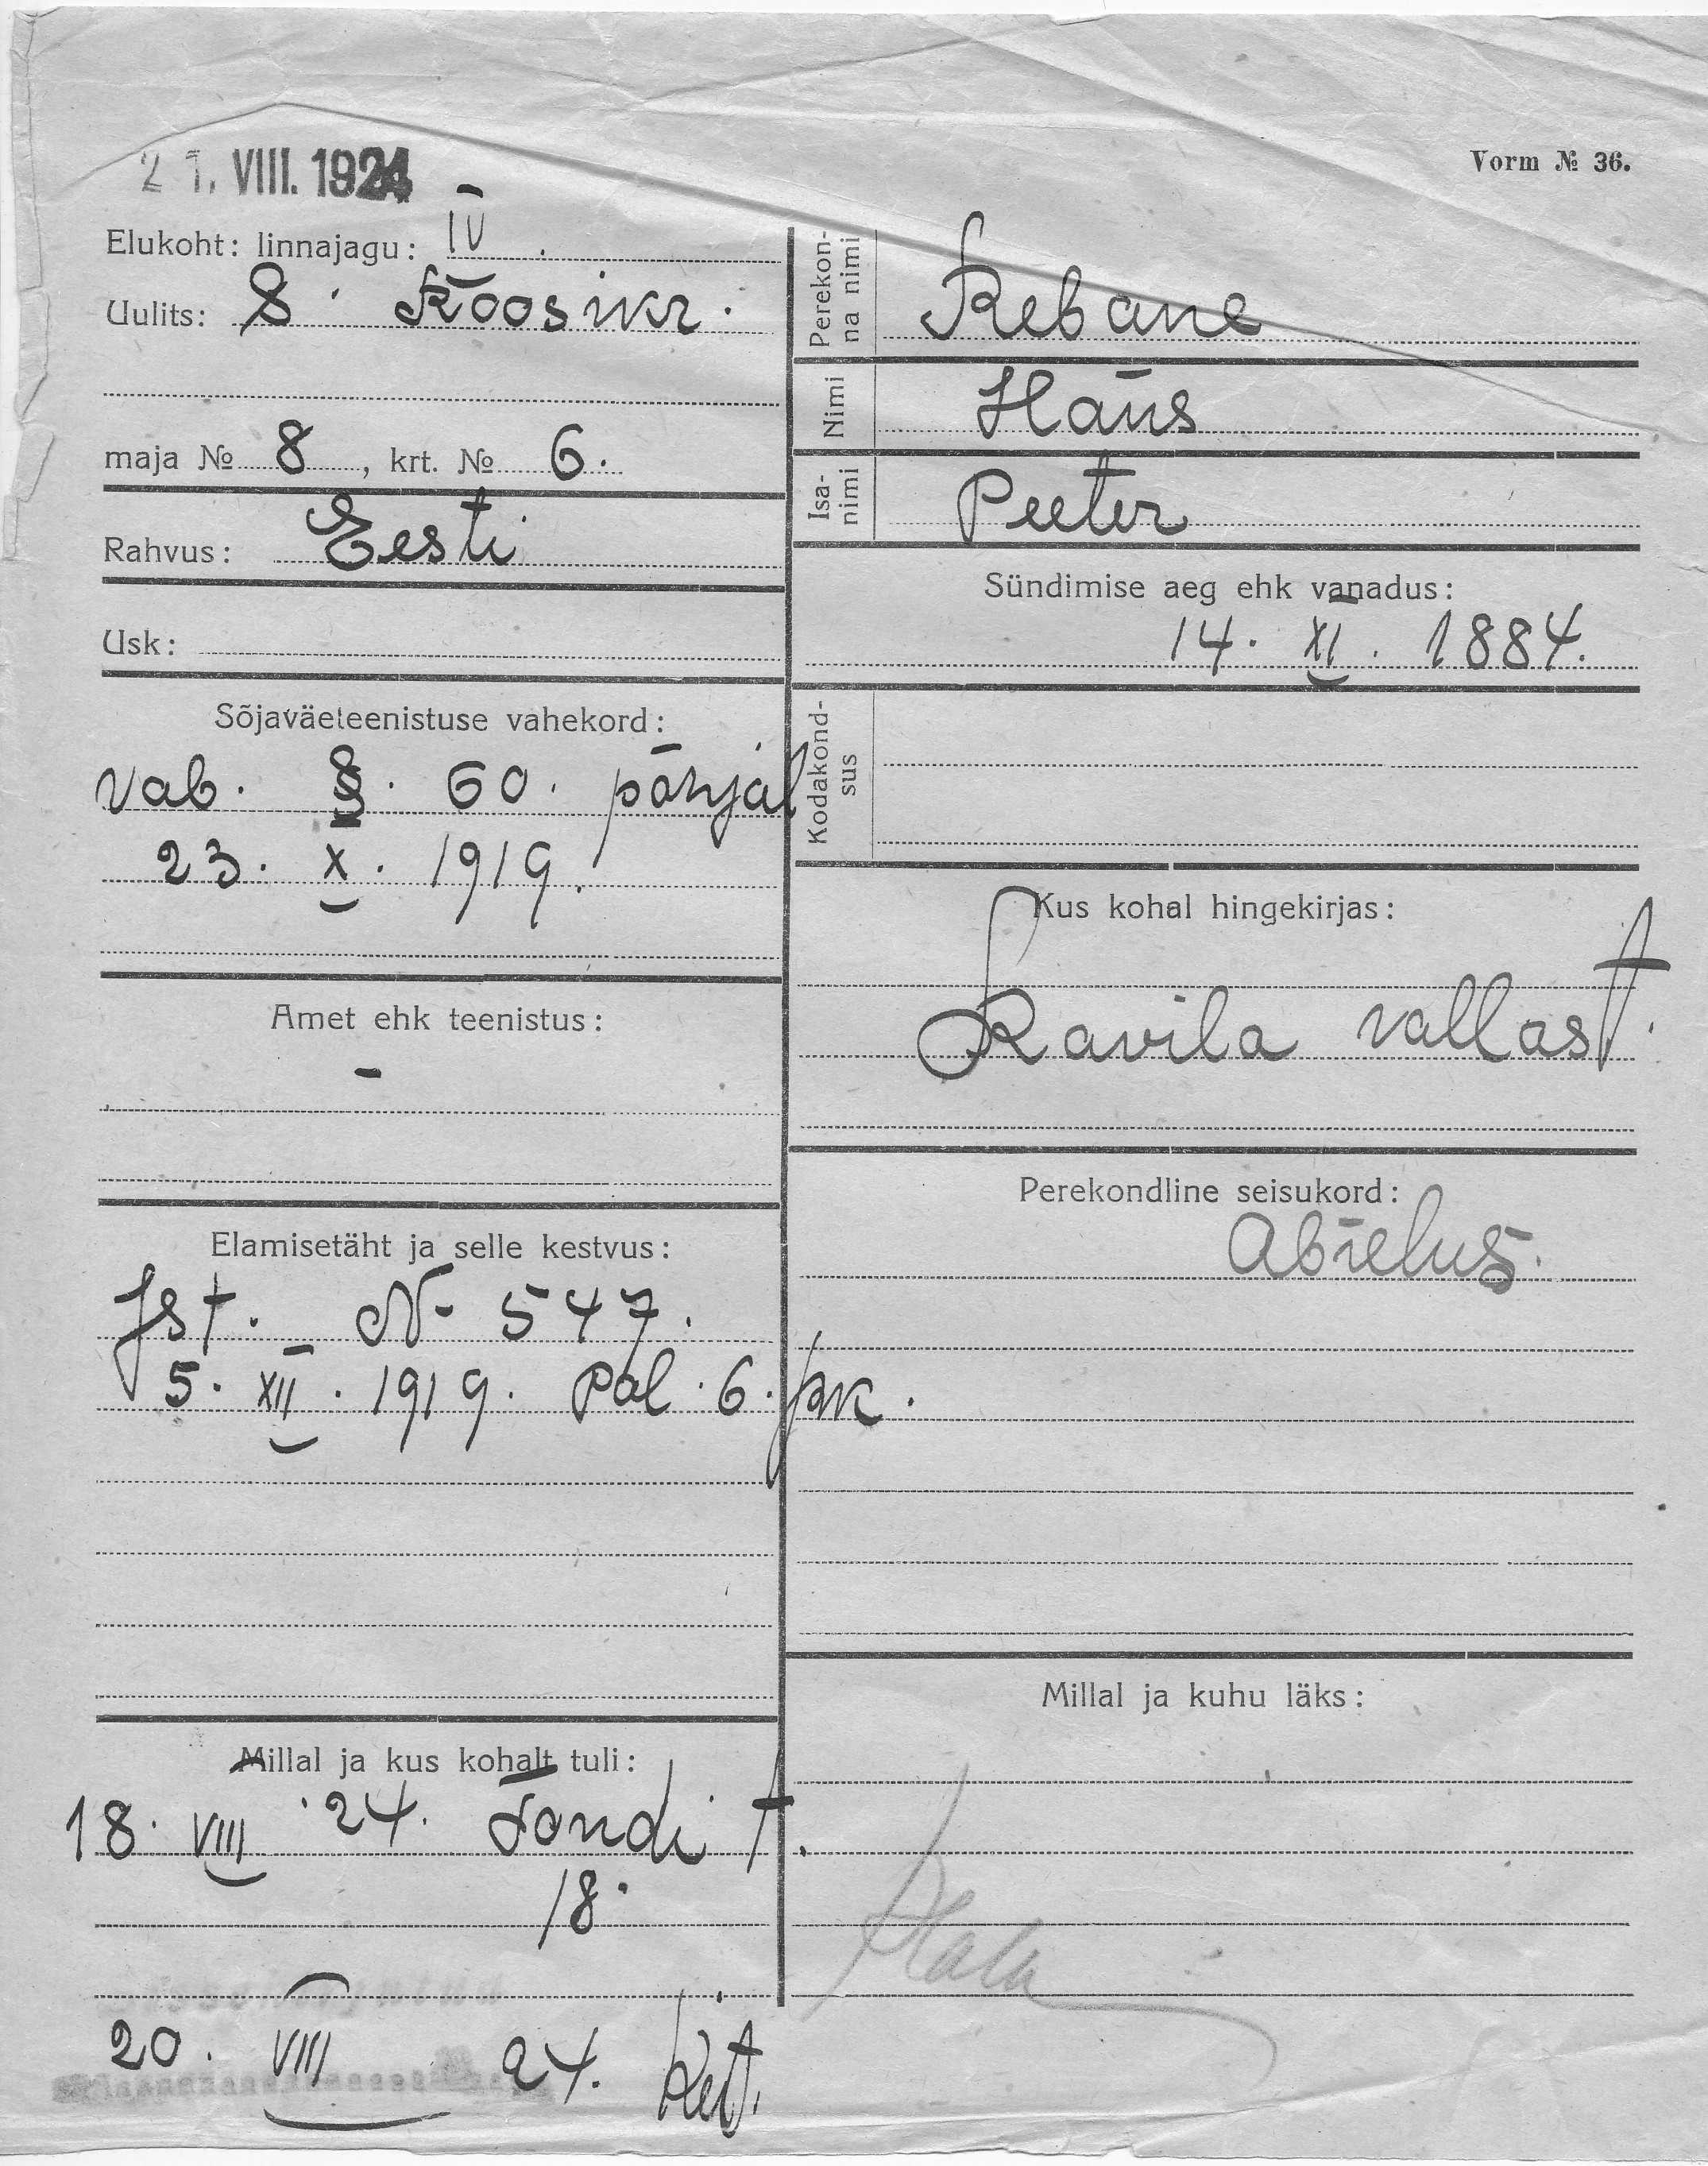 21. VIII. 1924
Vorm № 36.
Elukoht: linnajagu: IV.
Uulits: S. Roosikr.
maja № 8, krt. № 6.
Rahvus: Eesti
Usk:
Sõjaväeteenistuse vahekord:
vab. §. 60. põhjal
23. X. 1919.
Amet ehk teenistus:
-
Elamisetäht ja selle kestvus:
Jst. N- 547.
5. XII. 1919. Pol. 6. jsk.
Millal ja kus kohalt tuli:
18. VIII '24. Tondi t.
18.
20. VIII 24.
Perekonna nimi
Rebane
Nimi
Hans
Isanimi
Peeter
Sündimise aeg ehk vanadus:
14. XI. 1884.
Kodakondsus
Kus kohal hingekirjas:
Ravila vallast.
Perekondline seisukord:
Abielus.
Millal ja kuhu läks: